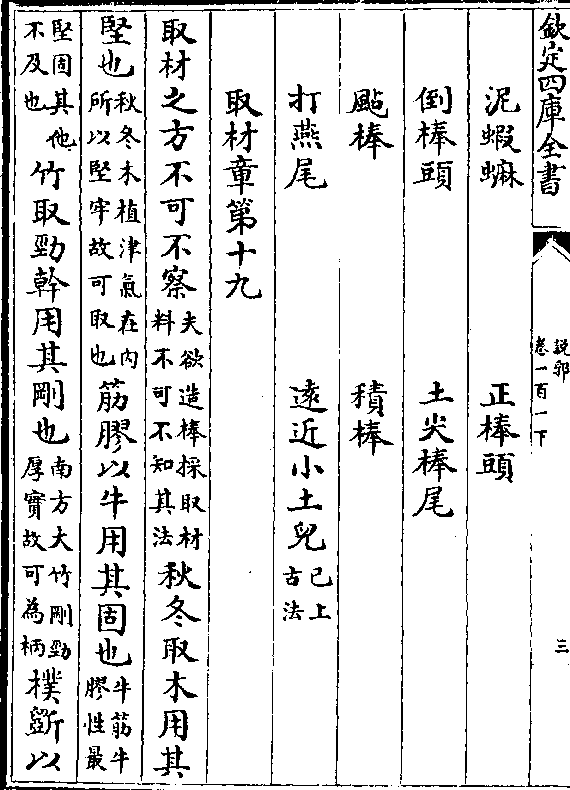 欽定四庫全書
說郛
卷一百一下
三
泥蝦蟆 正棒頭
倒棒頭 土尖棒尾
颭棒 積棒
打燕尾 遠近小土兒已上古法
取材章第十九
取材之方不可不察夫欲造棒採取材料不可不知其法秋冬取木用其
堅也秋冬木植津氣在內所以堅牢故可取也筋膠以牛用其固也牛筋牛膠性最
堅固其他不及也竹取勁幹用其剛也南方大竹剛勁厚實故可為柄樸斵以